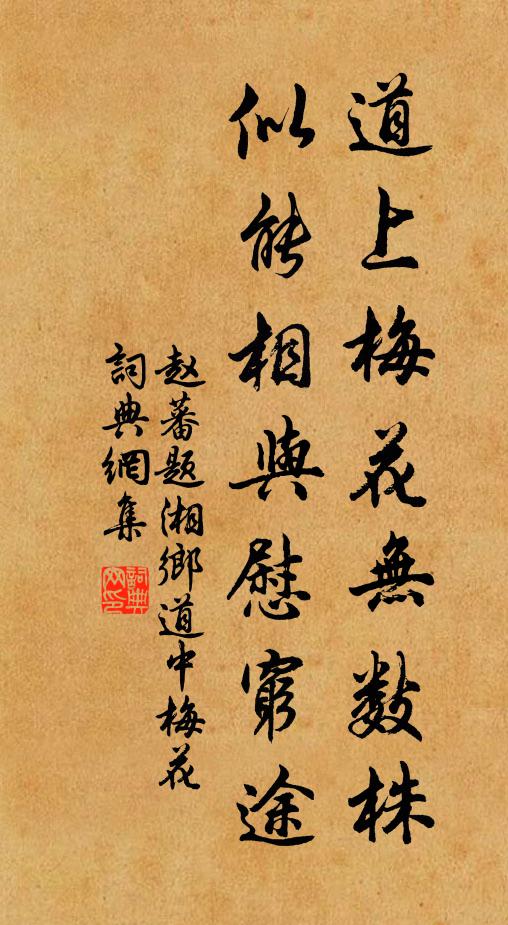 道上梅花無数株
似能相與慰窮途
赵蕃题湘鄉道中梅花
詞典網集
詞典网印